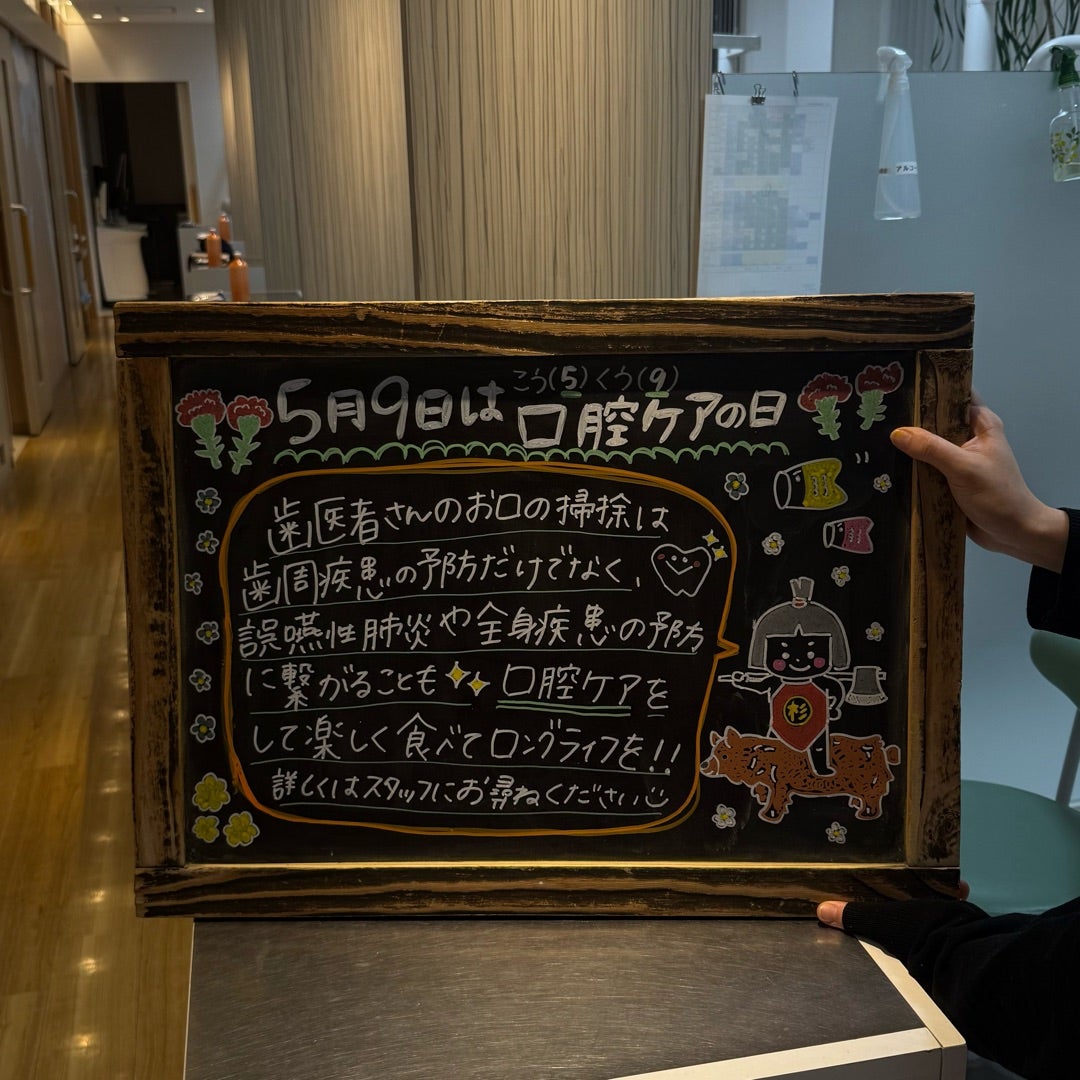 こう(5)くう(9)
5月9日は口腔ケアの日
歯医者さんのお口の掃除は
歯周疾患の予防だけでなく、
誤嚥性肺炎や全身疾患の予防
に繋がることも 口腔ケアを
して楽しく食べてロングライフを!!
詳しくはスタッフにお尋ねください
杉
アルコー